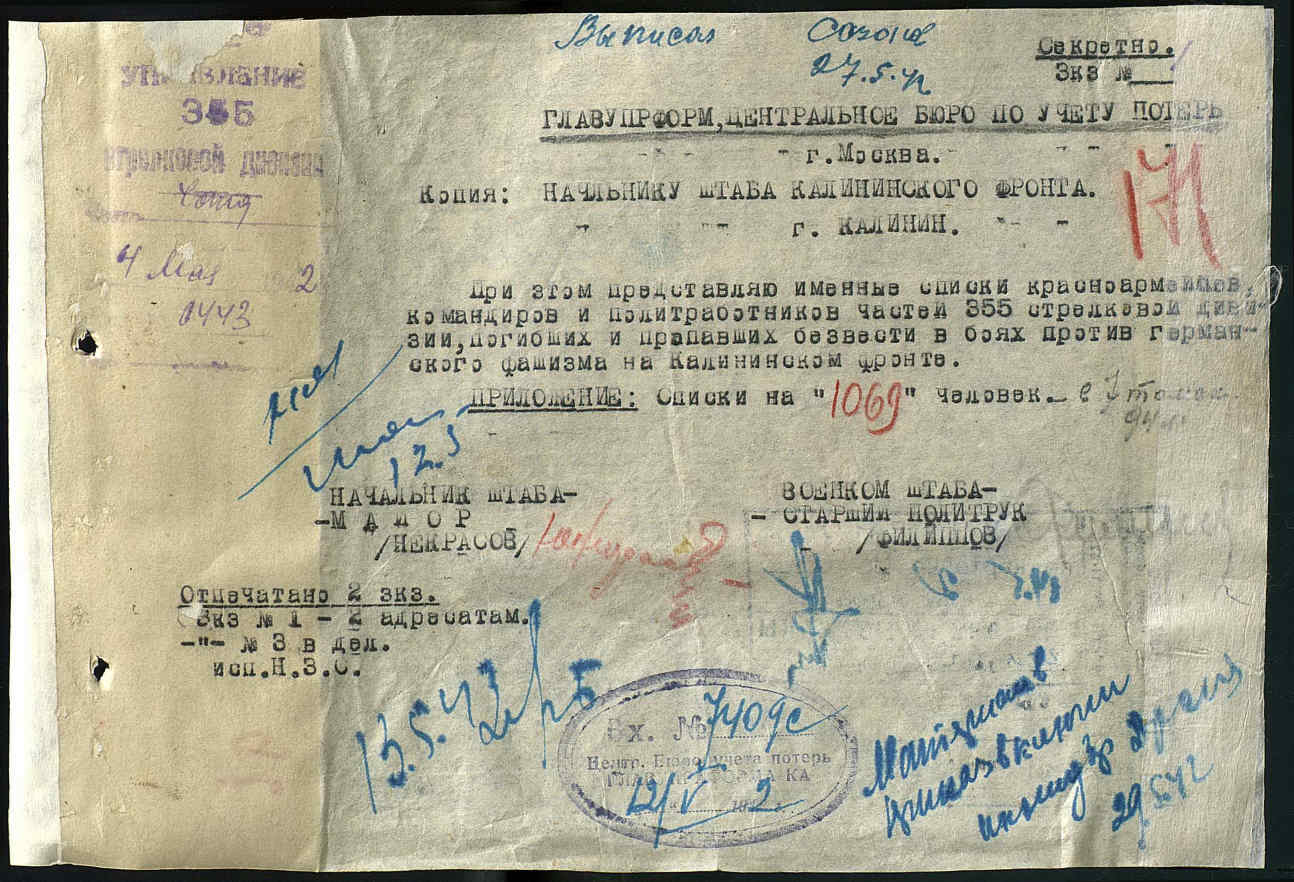 Выписал
27.5.42
Секретно.
Экз № 1
УПРАВЛЕНИЕ
355
стрелковой дивизии
4 Мая 2
0443
ГЛАВУПРФОРМ, ЦЕНТРАЛЬНОЕ БЮРО ПО УЧЕТУ ПОТЕРЬ
г. Москва.
171
Копия: НАЧЛЬНИКУ ШТАБА КАЛИНИНСКОГО ФРОНТА.
г. КАЛИНИН.
При этом представляю именные списки красноармейцев,
командиров и политработников частей 355 стрелковой диви-
зии, погибших и пропавших безвести в боях против герман-
ского фашизма на Калининском фронте.
ПРИЛОЖЕНИЕ: Списки на "1069" человек.
12.5
НАЧАЛЬНИК ШТАБА-
-МАЙОР -
/НЕКРАСОВ/
ВОЕНКОМ ШТАБА-
- СТАРШИЙ ПОЛИТРУК
/ФИЛИППОВ/
Отпечатано 2 экз.
Экз № 1 - 2 адресатам.
-"- № 3 в дел.
исп.Н.З.С.
13.5.42
Вх. № 7409с
Центр. Бюро учета потерь
ГЛАВУПРФОРМА КА
12/V 2
29.5.42